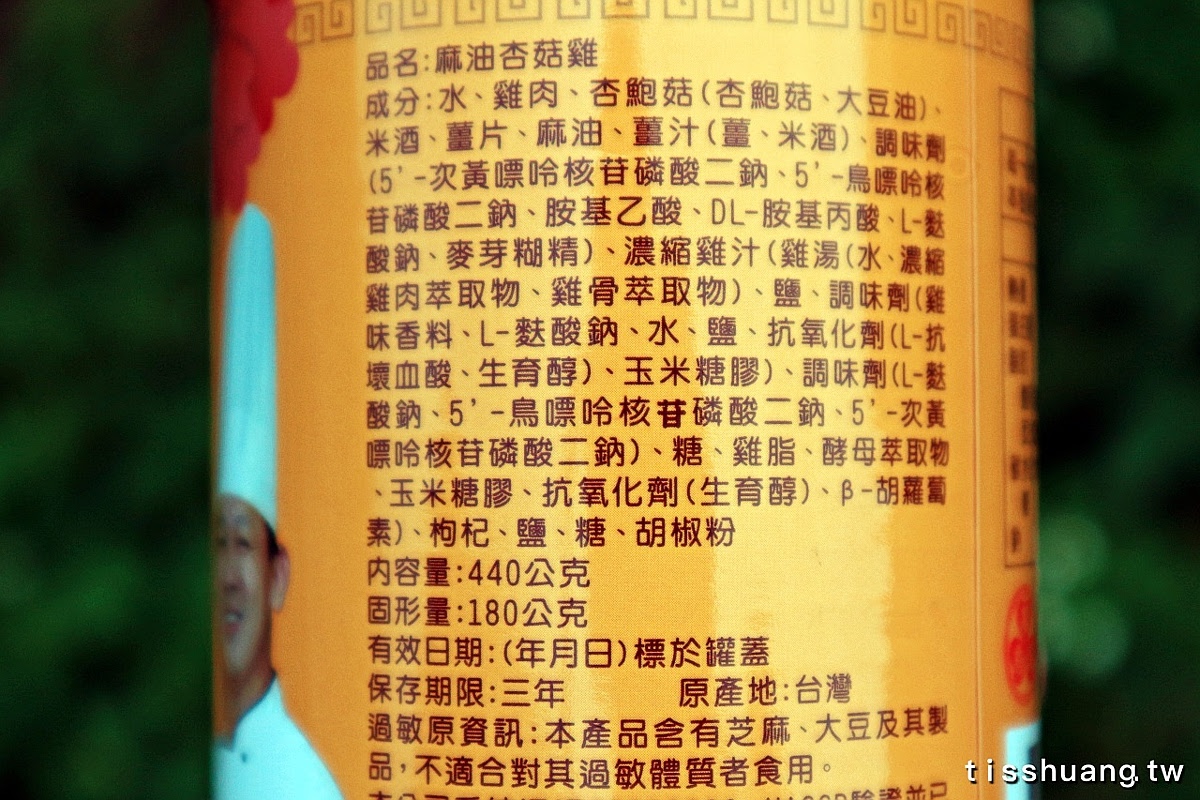 品名:麻油杏菇雞
成分:水、雞肉、杏鮑菇(杏鮑菇、大豆油)、
米酒、薑片、麻油、薑汁(薑、米酒)、調味劑
(5'-次黃嘌呤核苷磷酸二鈉、5'-鳥嘌呤核
苷磷酸二鈉、胺基乙酸、DL-胺基丙酸、L-麩
酸鈉、麥芽糊精)、濃縮雞汁(雞湯(水、濃縮
雞肉萃取物、雞骨萃取物)、鹽、調味劑(雞
味香料、L-麩酸鈉、水、鹽、抗氧化劑(L-抗
壞血酸、生育醇)、玉米糖膠)、調味劑(L-麩
酸鈉、5'-鳥嘌呤核苷磷酸二鈉、5'-次黃
嘌呤核苷磷酸二鈉)、糖、雞脂、酵母萃取物
、玉米糖膠、抗氧化劑(生育醇)、β-胡蘿蔔
素)、枸杞、鹽、糖、胡椒粉
內容量:440公克
固形量:180公克
有效日期:(年月日)標於罐蓋
保存期限:三年 原產地:台灣
過敏原資訊:本產品含有芝麻、大豆及其製
品,不適合對其過敏體質者食用。
tisshuang.tw